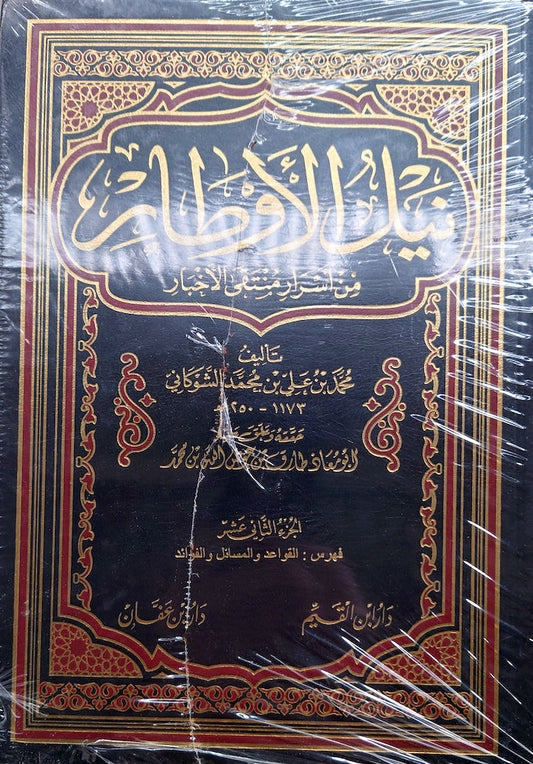 نَيْلُ الأَوْطَارِ
مِنْ أَسْرَارِ مُنْتَقَى الأَخْبَارِ
تَأليفُ
مُحَمَّد بْن عَلِي بْن مُحَمَّد الشَّوْكَانِي
١١٧٣ - ١٢٥٠هـ
حَقَّقَهُ وَعَلَّقَ عليه
أبو مُعَاذ طَارِق بْن عوض الله بْن مُحَمَّد
الجُزءُ الثَّانِي عَشَر
فهرس : القواعد والمسائل والفوائد
دَارُ ابْنِ القَيِّمِ
دَارُ ابْنِ عَفَّانَ